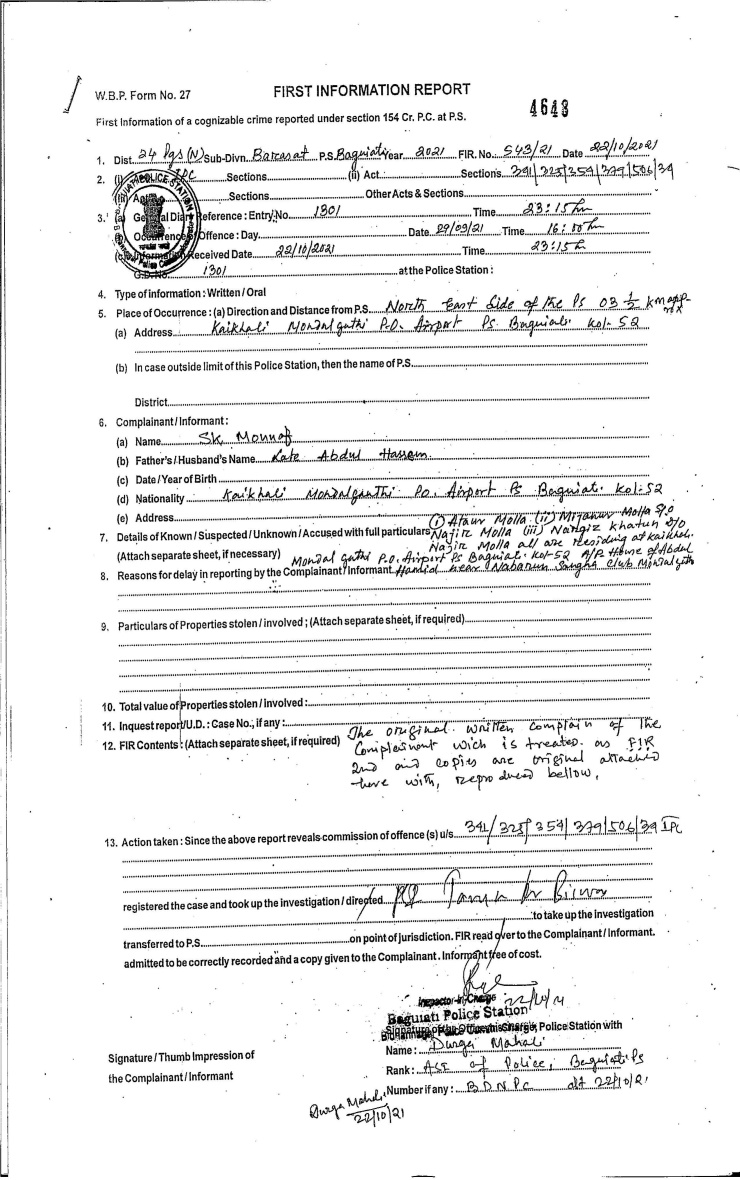 W.B.P. Form No. 27
FIRST INFORMATION REPORT
4643
First Information of a cognizable crime reported under section 154 Cr. P.C. at P.S.
1. Dist. 24 Pgs (N) Sub-Divn. Barasat P.S. Baguiati Year 2021 FIR. No. 543/21 Date 22/10/2021
2. (i) IPC Sections (ii) Act Sections 341/325/354/379/506/34
Sections Other Acts & Sections
3. (a) General Diary Reference : Entry No. 1301 Time 23:15 hr
Occurrence of Offence : Day Date 29/09/21 Time 16:00 hr
(c) Information Received Date 22/10/2021 Time 23:15 h
G.D. No. 1301 at the Police Station :
4. Type of information : Written / Oral
5. Place of Occurrence : (a) Direction and Distance from P.S. North East Side of the Ps 03 ½ km app-
rox
(a) Address Kaikhali Mondalganthi P.O. Airport Ps. Baguiati. Kol-52
(b) In case outside limit of this Police Station, then the name of P.S.
District
6. Complainant / Informant :
(a) Name Sk, Monnaf
(b) Father's / Husband's Name Late Abdul Hassem.
(c) Date / Year of Birth
(d) Nationality Kaikhali Mondalganthi P.O. Airport Ps Baguiati. Kol-52
(e) Address
(i) Ataur Molla (ii) Mijanur Molla S/o
7. Details of Known / Suspected / Unknown / Accused with full particulars Najir Molla (iii) Nargiz Khatun D/o
Najir Molla all are residing at Kaikhali.
(Attach separate sheet, if necessary) Mondal ganthi P.O. Airport Ps Baguiati. Kol-52 A/P House of Abdul
8. Reasons for delay in reporting by the Complainant / Informant Hamid near Nabarun Sangha Club Mondalganthi
9. Particulars of Properties stolen / involved ; (Attach separate sheet, if required)
10. Total value of Properties stolen / involved :
11. Inquest report/U.D. : Case No., if any :
12. FIR Contents : (Attach separate sheet, if required) The original written complain of the
Complainant wich is treated as FIR
2nd and copies are original attached
here with, reproduced bellow,
13. Action taken : Since the above report reveals commission of offence (s) u/s. 341/325/354/379/506/34 IPC
registered the case and took up the investigation / directed
to take up the investigation
transferred to P.S. on point of jurisdiction. FIR read over to the Complainant / Informant.
admitted to be correctly recorded and a copy given to the Complainant. Informant free of cost.
Inspector-in-Charge 22/10/21
Baguiati Police Station
Police Station with
Name : Durga Mahali
Signature / Thumb Impression of
Rank : ASI of Police, Baguiati Ps
the Complainant / Informant
Number if any : B.D.N.P.C dt 22/10/21
Durga Mahali
22/10/21